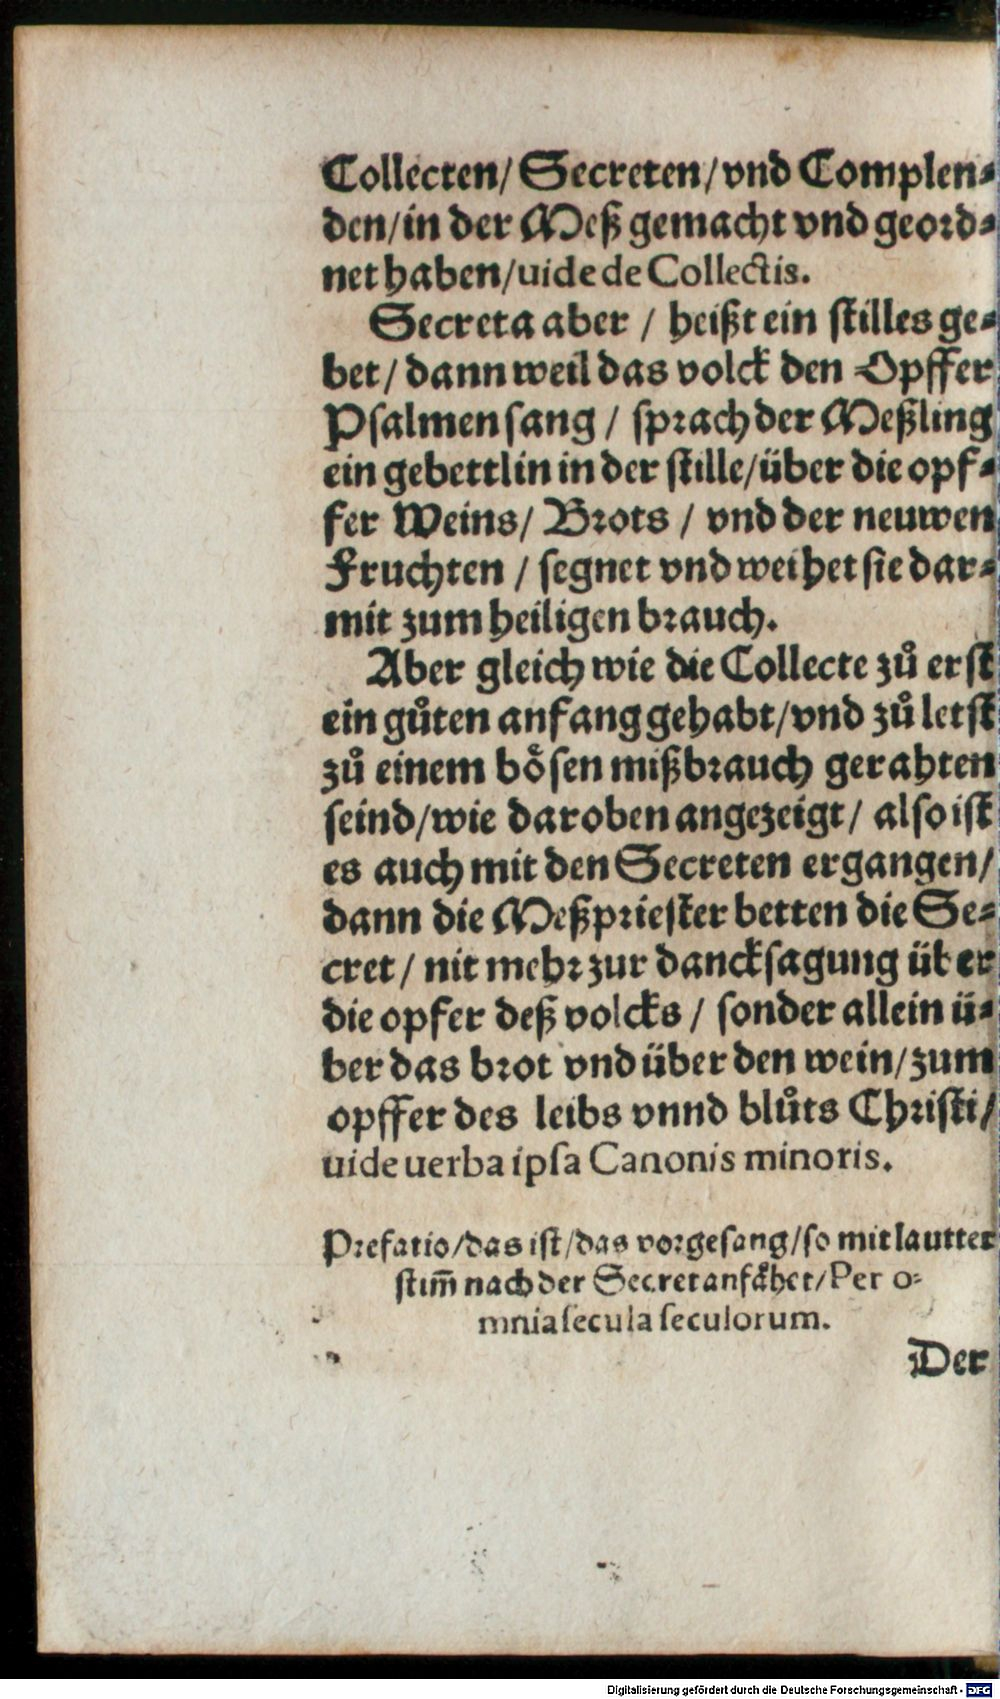 Collecten/ Secreten/ vnd Complen-
den/ in der Meß gemacht vnd geord-
net haben/ uide de Collectis.
Secreta aber / heißt ein stilles ge-
bet/ dann weil das volck den Opffer
Psalmen sang / sprach der Meßling
ein gebettlin in der stille/ über die opf-
fer Weins/ Brots / vnd der neuwen
Fruchten / segnet vnd weihet sie dar-
mit zum heiligen brauch.
Aber gleich wie die Collecte zů erst
ein gůten anfang gehabt/ vnd zů letst
zů einem boͤsen mißbrauch gerahten
seind/ wie daroben angezeigt/ also ist
es auch mit den Secreten ergangen/
dann die Meßpriester betten die Se-
cret/ nit mehr zur dancksagung über
die opfer deß volcks / sonder allein ü-
ber das brot vnd über den wein/ zum
opffer des leibs vnnd blůts Christi/
uide uerba ipsa Canonis minoris.
Prefatio/ das ist/ das vorgesang/ so mit lautter
stim̄ nach der Secret anfaͤhet/ Per o-
mnia secula seculorum.
Der
Digitalisierung gefördert durch die Deutsche Forschungsgemeinschaft - DFG